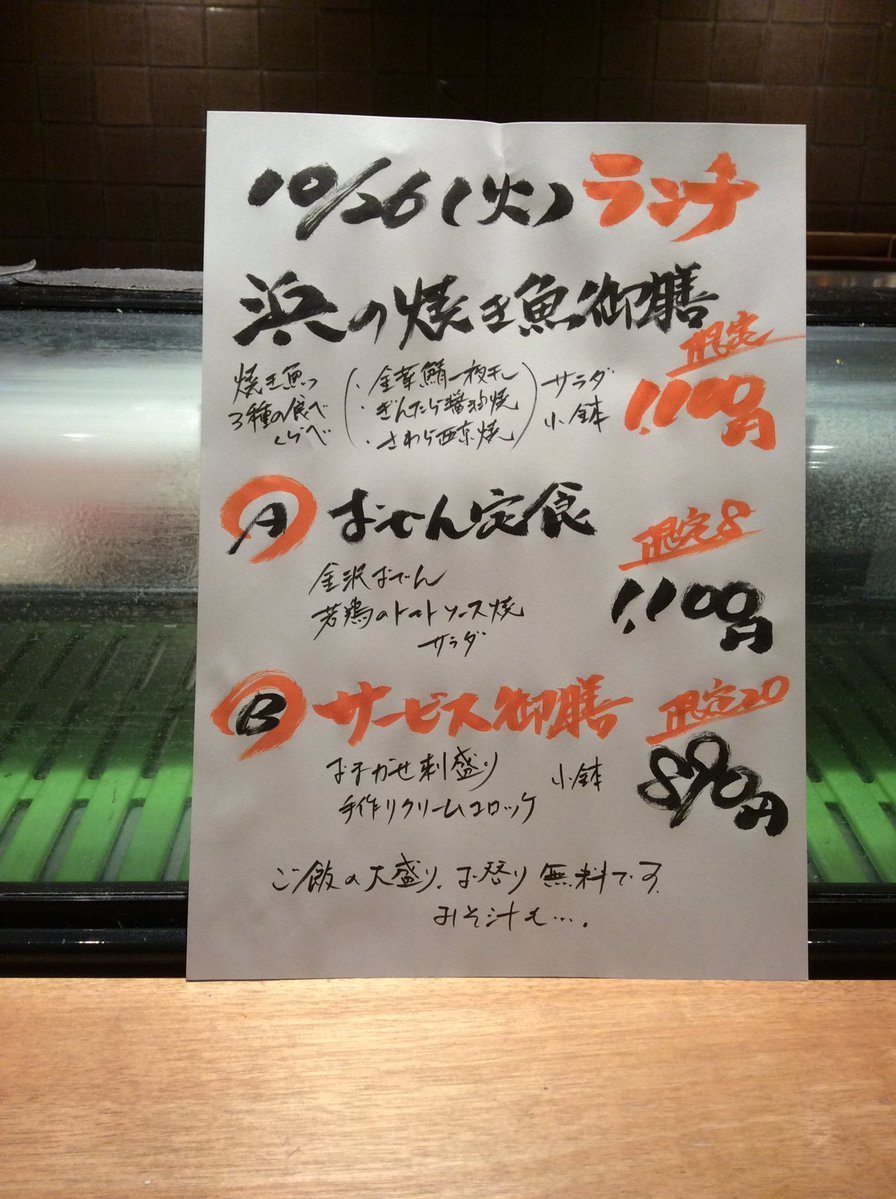 10/26(火)ランチ
浜の焼き魚御膳
限定
1,100円
焼き魚
3種の食べ
くらべ
・金華鯖一夜干し
・ぎんだら醤油焼
・さわら西京焼
サラダ
小鉢
A おせん定食
限定8
1,100円
金沢おでん
若鶏のトマトソース焼
サラダ
B サービス御膳
限定20
890円
おまかせ刺盛り 小鉢
手作りクリームコロッケ
ご飯の大盛り、お替り無料です
みそ汁も….